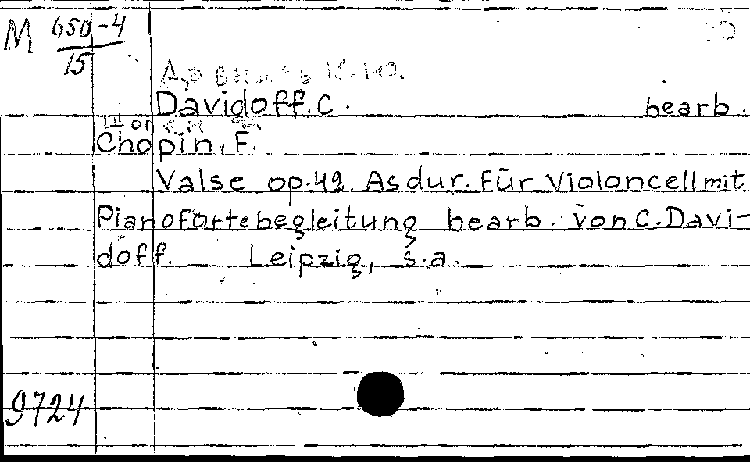 M 650-4
15
Davidoff. C. bearb.
Chopin, F.
Valse op. 42. As dur. Für Violoncell mit
Pianofortebegleitung bearb. von C. Davi-
doff. Leipzig, s.a.
9724